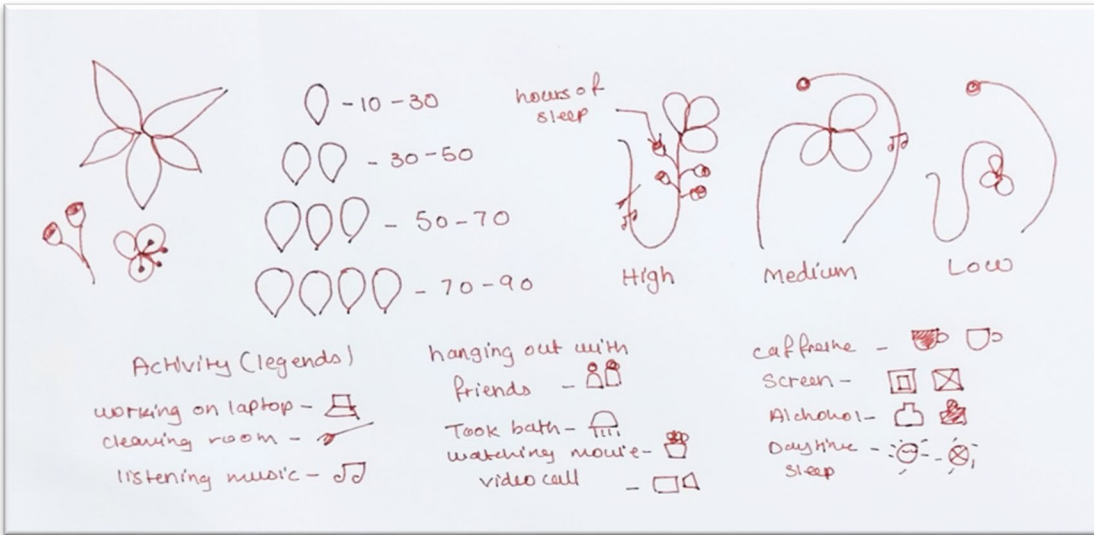 - 10 - 30
- 30 - 50
- 50 - 70
- 70 - 90
hours of
sleep
High
Medium
Low
Activity (legends)
working on laptop -
cleaning room -
listening music -
hanging out with
friends -
Took bath -
watching movie -
video call -
caffeine -
Screen -
Alchohol -
Daytime -
sleep